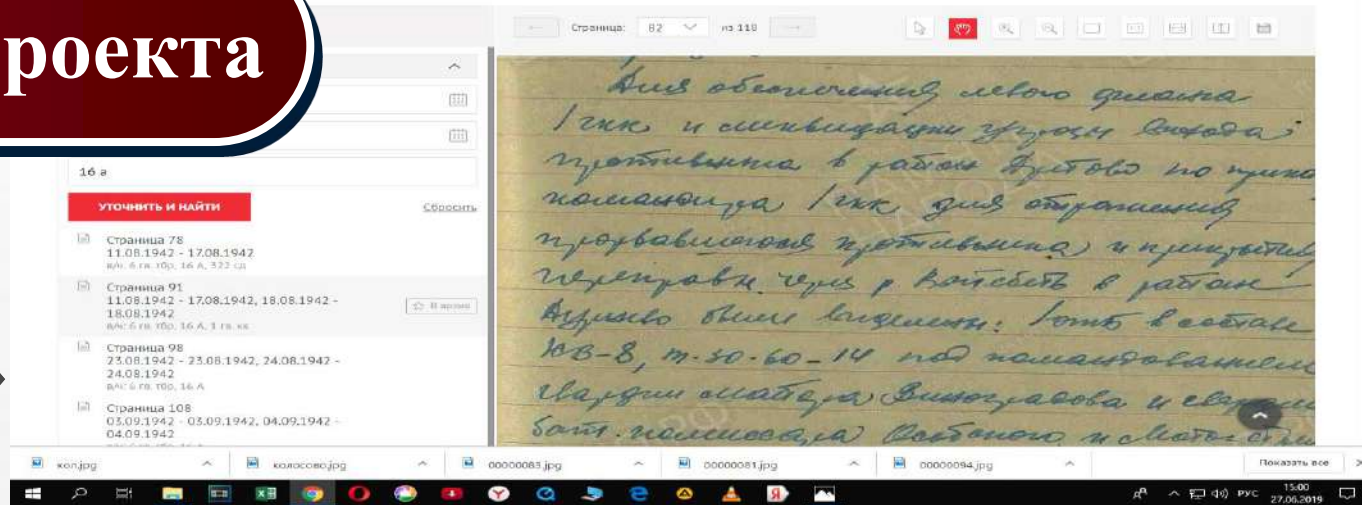 роекта
Страница: 82 из 118
16 а
УТОЧНИТЬ И НАЙТИ
Сбросить
Страница 78
11.08.1942 - 17.08.1942
в/ч: 6 гв. тбр, 16 А, 322 сд
Страница 91
11.08.1942 - 17.08.1942, 18.08.1942 -
18.08.1942
В архив
в/ч: 6 гв. тбр, 16 А, 1 гв. кк
Страница 98
23.08.1942 - 23.08.1942, 24.08.1942 -
24.08.1942
в/ч: 6 гв. тбр, 16 А
Страница 108
03.09.1942 - 03.09.1942, 04.09.1942 -
04.09.1942
Для обеспечения левого фланга
1 гкк и ликвидации угрозы выхода
противника в район по
командира 1 гкк для отражения
прорвавшегося противника и прикрытия
переправы через р в районе
были выделены: в составе
КВ-8, т-30-60-14 под командованием
гвардии майора Виноградова и
бат. комиссара и
кол.jpg
колосово.jpg
00000083.jpg
00000081.jpg
00000094.jpg
Показать все
РУС
15:00
27.06.2019